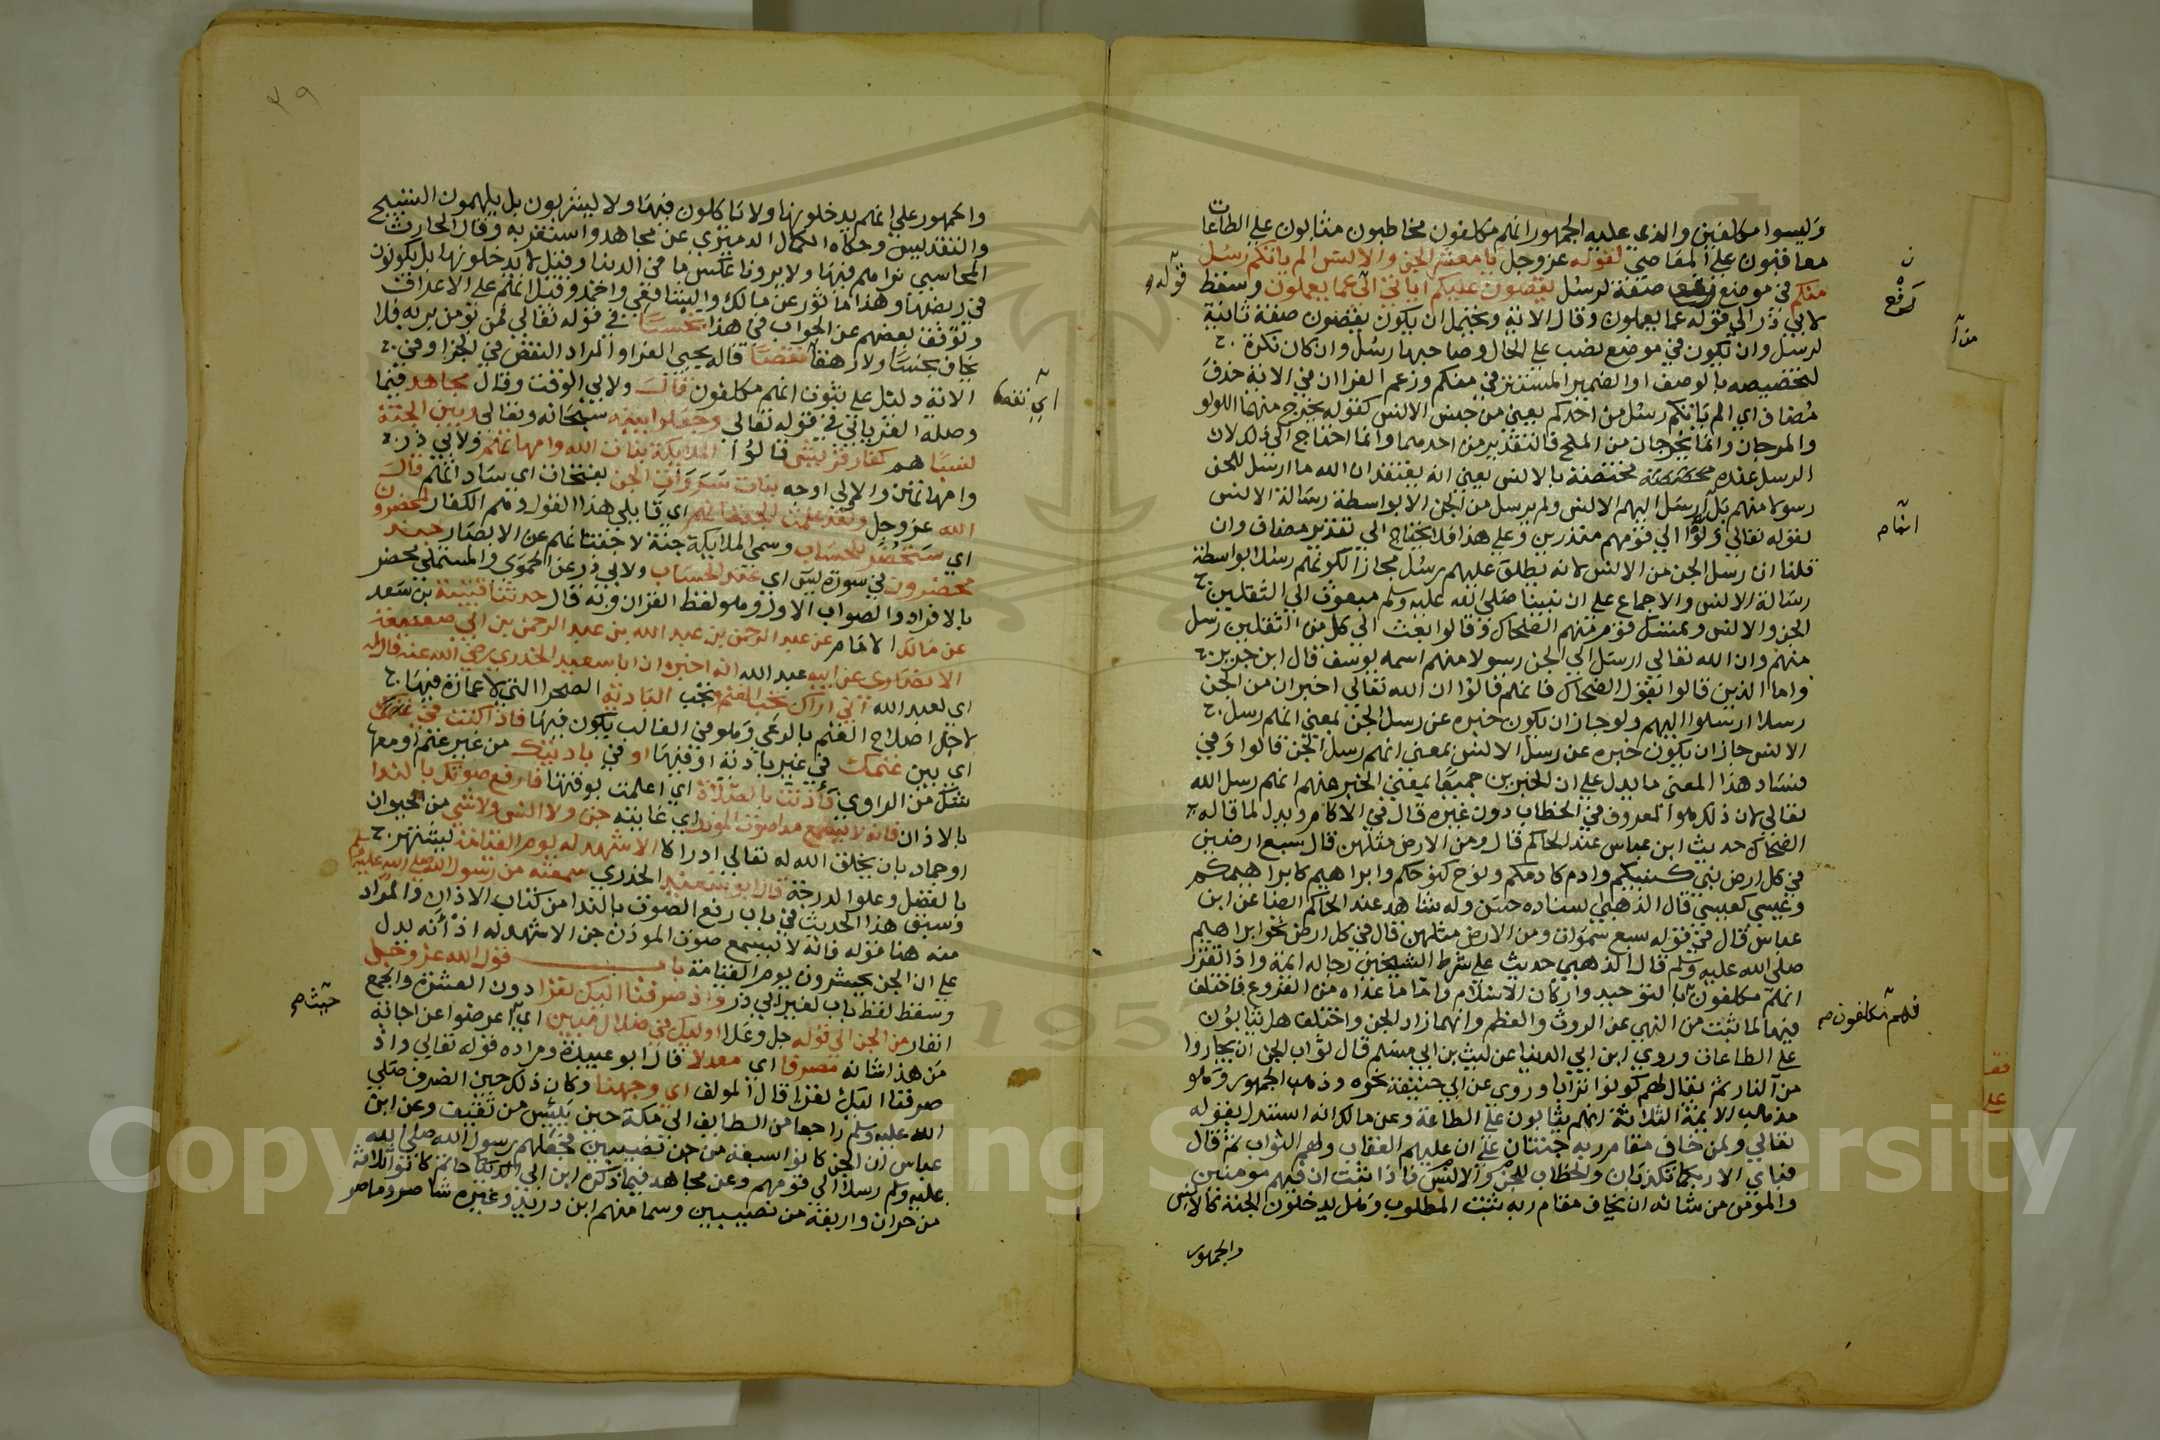 وليسوا مكلفين والذي عليه الجمهور انهم مكلفون مخاطبون مثابون على الطاعات
معاقبون على المعاصي لقوله عز وجل يا معشر الجن والانس الم ياتكم رسل
منكم في موضع رفع صفة لرسل يقصون عليكم اياتي الى عما يعملون وسقط
لابي ذر الى قوله عما يعملون وقال الاية ويحتمل ان يكون يقصون صفة ثانية
لرسل وان يكون في موضع نصب على الحال وصاحبها رسل وان كان نكرة
لتخصيصه بالوصف او الضمير المستتر في منكم وزعم الفرا ان في الاية حذف
مضاف اي الم ياتكم رسل من احدكم يعني من جنس الانس كقوله يخرج منهما اللولو
والمرجان وانما يخرجان من الملح فالتقدير من احدهما وانما احتاج الى ذلك لان
الرسل عنده مختصة بالانس يعني انه يعتقد ان الله ما ارسل للجن
رسولا منهم بل ارسل اليهم الانس ولم يرسل من الجن الا بواسطة رسالة الانس
لقوله تعالى ولوا الى قومهم منذرين وعلى هذا فلا يحتاج الى تقدير مضاف وان
قلنا ان رسل الجن من الانس لانه يطلق عليهم رسل مجازا لكونهم رسلا بواسطة
رسالة الانس والاجماع على ان نبينا صلى الله عليه وسلم مبعوث الى الثقلين
الجن والانس وتمسك قوم منهم الضحاك وقالوا بعث الى كل من الثقلين رسل
منهم وان الله تعالى ارسل الى الجن رسولا منهم اسمه يوسف قال ابن جرير
واما الذين قالوا بقول الضحاك فانهم قالوا ان الله تعالى اخبر ان من الجن
رسلا ارسلوا اليهم ولو جاز ان يكون خبره عن رسل الجن بمعنى انهم رسل
الانس جاز ان يكون خبره عن رسل الانس بمعنى انهم رسل الجن قالوا وفي
فساد هذا المعنى ما يدل على ان الخبرين جميعا بمعنى الخبر عنهم انهم رسل الله
تعالى لان ذلك هو المعروف في الخطاب دون غيره قال في الاكام ويدل لما قاله
الضحاك حديث ابن عباس عند الحاكم قال ومن الارض مثلهن قال سبع ارضين
في كل ارض نبي كنبيكم وادم كادمكم ونوح كنوحكم وابراهيم كابراهيمكم
وعيسى كعيسى قال الذهبي اسناده حسن وله شاهد عند الحاكم ايضا عن ابن
عباس قال في قوله سبع سموات ومن الارض مثلهن قال في كل ارض نحو ابراهيم
صلى الله عليه وسلم قال الذهبي حديث على شرط الشيخين رجاله ايمة واذا تقرر
انهم مكلفون بالتوحيد واركان الاسلام واما ما عداه من الفروع فاختلف
فيها لما ثبت من النهي عن الروث والعظم وانهما زاد الجن واختلف هل يثابون
على الطاعات وروى ابن ابي الدنيا عن ليث بن ابي مسلم قال ثواب الجن ان يجاروا
من النار ثم يقال لهم كونوا ترابا وروى عن ابي حنيفة نحوه وذهب الجمهور وهو
مذهب الايمة الثلاثة انهم يثابون على الطاعة وعن مالك انه استدل بقوله
تعالى ولمن خاف مقام ربه جنتان على ان عليهم العقاب ولهم الثواب ثم قال
فباي الا ربكما تكذبان والخطاب للجن والانس فاذا ثبت ان فيهم مومنين
والمومن من شانه ان يخاف مقام ربه ثبت المطلوب وهل يدخلون الجنة كالانس
والجمهور
قوله
رفع
انهام
فهم مكلفون
٣٩
والجمهور على انهم يدخلونها ولا ياكلون فيها ولا يشربون بل يلهمون التسبيح
والتقديس وحكاه الكمال الدميري عن مجاهد واستغربه وقال الحارث
المحاسبي نراهم فيها ولا يرونا عكس ما في الدنيا وقيل لا يدخلونها بل يكونون
في ربضها وهذا ماثور عن مالك والشافعي واحمد وقيل انهم على الاعراف
وتوقف بعضهم عن الجواب في هذا بخسا في قوله تعالى فمن يومن بربه فلا
يخاف بخسا ولا رهقا نقصا قاله يحيى الفرا والمراد النقص في الجزا وفي
الاية دليل على ثبوت انهم مكلفون قال ولابي الوقت وقال مجاهد فيما
وصله الفريابي في قوله تعالى وجعلوا بينه سبحانه وتعالى وبين الجنة
نسبا هم كفار قريش قالوا الملايكة بنات الله وامهاتهم ولابي ذر
وامهاتهن والاولى اوجه بنات سروات الجن بفتحات اي سادتهم قال
الله عز وجل ولقد علمت الجنة انهم اي قايلي هذا القول وهم الكفار لمحضرون
اي ستحضر للحساب وسمى الملايكة جنة لاجتنانهم عن الابصار جند
محضرون في سورة يس اي عند الحساب ولابي ذر عن الحموي والمستملي محضر
بالافراد والصواب الاول وهو لفظ القران وبه قال حدثنا قتيبة بن سعد
عن مالك الامام عن عبد الرحمن بن عبد الله بن عبد الرحمن بن ابي صعصعة
الانصاري عن ابيه عبد الله انه اخبره ان ابا سعيد الخدري رضي الله عنه قال له
اي لعبد الله اني اراك تحب الغنم وتحب البادية الصحرا التي لا عمارة فيها
لاجل اصلاح الغنم بالرعي وهو في الغالب يكون فيها فاذا كنت في غنمك
اي بين غنمك في غير بادية او فيها او في باديتك من غير غنم او معها
شك من الراوي فاذنت بالصلاة اي اعلمت بوقتها فارفع صوتك بالندا
بالاذان فانه لا يسمع مدا صوت الموذن اي غايته جن ولا انس ولا شي من الحيوان
او جماد بان يخلق الله له تعالى ادراكا الا شهد له يوم القيامة ليشتهر
بالفضل وعلو الدرجة قال ابو سعيد الخدري سمعته من رسول الله صلى الله عليه وسلم
وسبق هذا الحديث في باب رفع الصوت بالندا من كتاب الاذان والمراد
منه هنا قوله فانه لا يسمع صوت الموذن جن الا شهد له اذ انه يدل
على ان الجن يحشرون يوم القيامة باب قول الله عز وجل
وسقط لفظ باب لغير ابي ذر واذ صرفنا اليك نفرا دون العشرة والجمع
انفار من الجن الى قوله جل وعلا اوليك في ضلال مبين اي اعرضوا عن اجابة
من هذا شانه مصرفا اي معدلا قال ابو عبيدة ومراده قوله تعالى واذ
صرفنا اليك نفرا قال المولف اي وجهنا وكان ذلك حين انصرف صلى
الله عليه وسلم راجعا من الطايف الى مكة حين يئس من ثقيف وعن ابن
عباس ان الجن كانوا سبعة من جن نصيبين فجعلهم رسول الله صلى الله
عليه وسلم رسلا الى قومهم وعن مجاهد فيما ذكره ابن ابي حاتم كانوا ثلاثة
من حران واربعة من نصيبين وسما منهم ابن دريد وغيره شاصر وماصر
اي نقصا
حيث